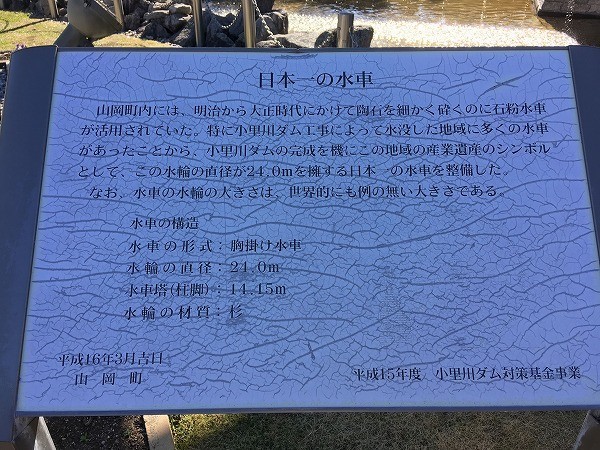 日本一の水車
山岡町内には、明治から大正時代にかけて陶石を細かく砕くのに石粉水車
が活用されていた。特に小里川ダム工事によって水没した地域に多くの水車
があったことから、小里川ダムの完成を機にこの地域の産業遺産のシンボル
として、この水輪の直径が24.0mを擁する日本一の水車を整備した。
なお、水車の水輪の大きさは、世界的にも例の無い大きさである。
水車の構造
水車の形式：胸掛け水車
水輪の直径：24.0m
水車塔(柱脚)：14.15m
水輪の材質：杉
平成16年3月吉日
山岡町
平成15年度 小里川ダム対策基金事業